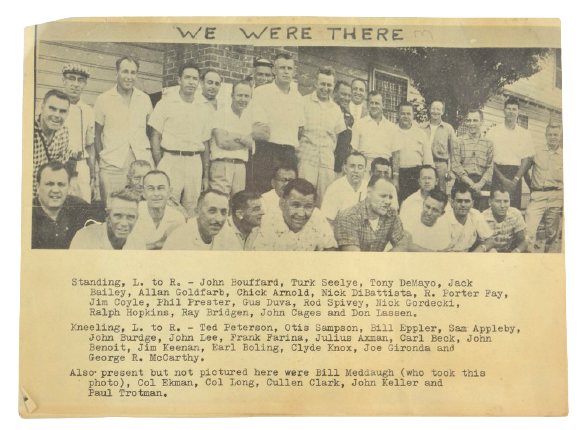 WE WERE THERE
Standing, L. to R. - John Bouffard, Turk Seelye, Tony DeMayo, Jack
Bailey, Allan Goldfarb, Chick Arnold, Nick DiBattista, R. Porter Fay,
Jim Coyle, Phil Prester, Gus Duva, Rod Spivey, Nick Gordecki,
Ralph Hopkins, Ray Bridgen, John Cages and Don Lassen.
Kneeling, L. to R. - Ted Peterson, Otis Sampson, Bill Eppler, Sam Appleby,
John Burdge, John Lee, Frank Farina, Julius Axman, Carl Beck, John
Benoit, Jim Keenan, Earl Boling, Clyde Knox, Joe Gironda and
George R. McCarthy.
Also present but not pictured here were Bill Meddaugh (who took this
photo), Col Ekman, Col Long, Cullen Clark, John Keller and
Paul Trotman.